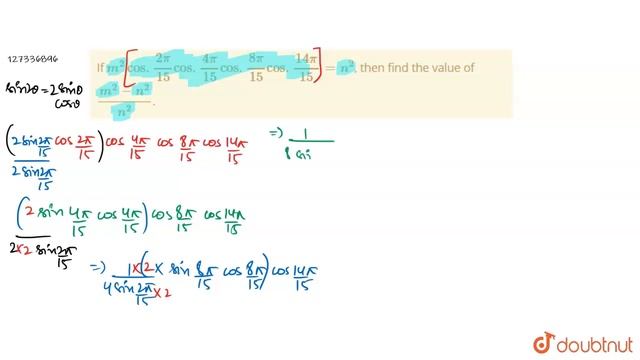 127336896
If m² [cos. 2π/15 cos. 4π/15 cos. 8π/15 cos. 14π/15] = n², then find the value of
(m² − n²)/n².
sin2θ = 2sinθ
cosθ
(2 sin 2π/15 cos 2π/15) cos 4π/15 cos 8π/15 cos 14π/15
2 sin 2π/15
(2 sin 4π/15 cos 4π/15) cos 8π/15 cos 14π/15
2×2 sin 2π/15
=) 1×(2× sin 8π/15 cos 8π/15) cos 14π/15
4 sin 2π/15 ×2
=) 1
8 sin
doubtnut